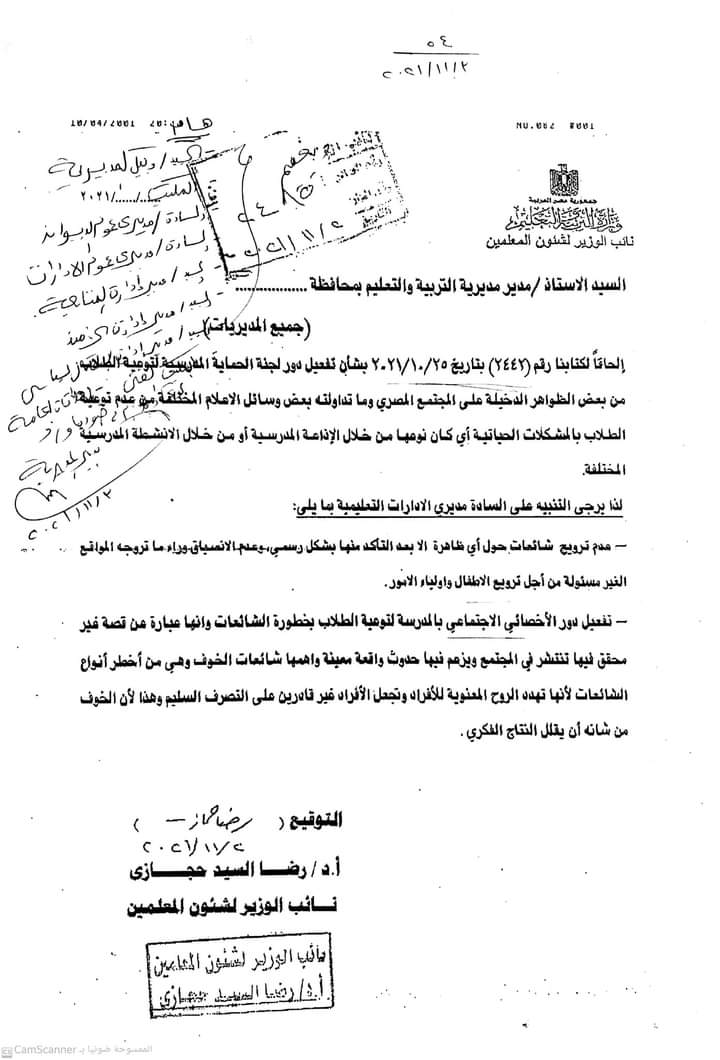 ٥٤
٢٠٢١/١١/٢
10/04/2001 20: هام
NO.002 #001
جمهورية مصر العربية
وزارة التربية والتعليم
نائب الوزير لشئون المعلمين
السيد / وكيل المديرية
٢٠٢١/ /
السادة / مديرى عموم الديوان
السادة / مديرى عموم الادارات
٢٠٢١/١١/٢
السيد الاستاذ /مدير مديرية التربية والتعليم بمحافظة .................
(جميع المديريات)
إلحاقاً لكتابنا رقم (٢٤٤٢) بتاريخ ٢٠٢١/١٠/٢٥ بشأن تفعيل دور لجنة الحماية المدرسية لتوعية الطلاب
من بعض الظواهر الدخيلة على المجتمع المصري وما تداولته بعض وسائل الاعلام المختلفة من عدم توعية
الطلاب بالمشكلات الحياتية أي كان نوعها من خلال الإذاعة المدرسية أو من خلال الانشطة المدرسية
المختلفة.
لذا يرجى التنبيه على السادة مديري الادارات التعليمية بما يلى:
– عدم ترويج شائعات حول أي ظاهرة الا بعد التأكد منها بشكل رسمي، وعدم الانسياق وراء ما تروجه المواقع
الغير مسئولة من أجل ترويع الاطفال واولياء الامور.
– تفعيل دور الأخصائي الاجتماعي بالمدرسة لتوعية الطلاب بخطورة الشائعات وانها عبارة عن قصة غير
محقق فيها تنتشر في المجتمع ويزعم فيها حدوث واقعة معينة واهمها شائعات الخوف وهي من أخطر أنواع
الشائعات لأنها تهدد الروح المعنوية للأفراد وتجعل الأفراد غير قادرين على التصرف السليم وهذا لأن الخوف
من شانه أن يقلل النتاج الفكري .
٢٠٢١/١١/٢
التوقيع ( رضا حجازى )
٢٠٢١/١١/٢
أ.د/ رضا السيد حجازى
نائب الوزير لشئون المعلمين
نائب الوزير لشئون المعلمين
أ.د/ رضا السيد حجازى
الممسوحة ضوئيا بـ CamScanner